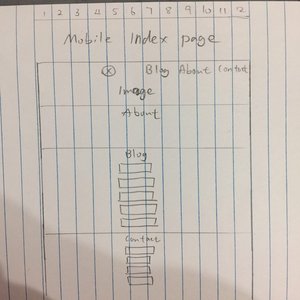 1 2 3 4 5 6 7 8 9 10 11 12
Mobile Index page
X Blog About Contact
Image
About
Blog
Contact